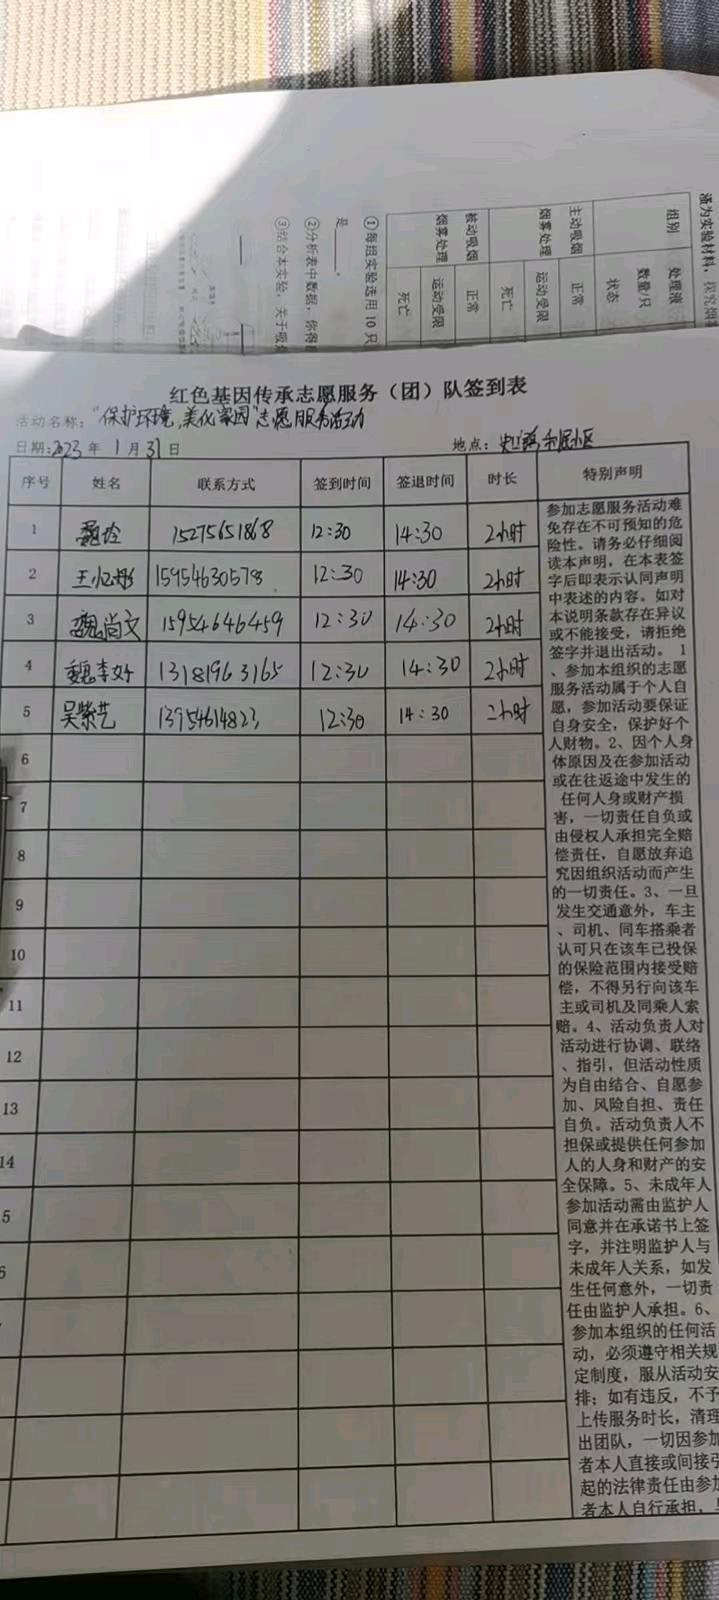 涌为实验材料，探究烟
组别
处理液
数量/只
状态
主动吸烟
烟雾处理
正常
运动受限
死亡
被动吸烟
烟雾处理
正常
运动受限
死亡
①每组实验选用 10 只
是____。
②分析表中数据，你得
③结合本实验，关于吸
红色基因传承志愿服务（团）队签到表
活动名称：“保护环境，美化家园”志愿服务活动
日期：2023 年 1 月 31 日
地点：小区
序号 姓名 联系方式 签到时间 签退时间 时长 特别声明
1 魏玲 15275651868 12:30 14:30 2小时
2 王 15954630578 12:30 14:30 2小时
3 魏尚文 15954646459 12:30 14:30 2小时
4 魏李好 13181963165 12:30 14:30 2小时
5 吴紫艺 13954614823 12:30 14:30 2小时
6
7
8
9
10
11
12
13
14
5
6
参加志愿服务活动难
免存在不可预知的危
险性。请务必仔细阅
读本声明，在本表签
字后即表示认同声明
中表述的内容。如对
本说明条款存在异议
或不能接受，请拒绝
签字并退出活动。 1
、参加本组织的志愿
服务活动属于个人自
愿，参加活动要保证
自身安全，保护好个
人财物。2、因个人身
体原因及在参加活动
或在往返途中发生的
任何人身或财产损
害，一切责任自负或
由侵权人承担完全赔
偿责任，自愿放弃追
究因组织活动而产生
的一切责任。3、一旦
发生交通意外，车主
、司机、同车搭乘者
认可只在该车已投保
的保险范围内接受赔
偿，不得另行向该车
主或司机及同乘人索
赔。4、活动负责人对
活动进行协调、联络
、指引，但活动性质
为自由结合、自愿参
加、风险自担、责任
自负。活动负责人不
担保或提供任何参加
人的人身和财产的安
全保障。5、未成年人
参加活动需由监护人
同意并在承诺书上签
字，并注明监护人与
未成年人关系，如发
生任何意外，一切责
任由监护人承担。6、
参加本组织的任何活
动，必须遵守相关规
定制度，服从活动安
排；如有违反，不予
上传服务时长，清理
出团队，一切因参加
者本人直接或间接引
起的法律责任由参加
者本人自行承担，